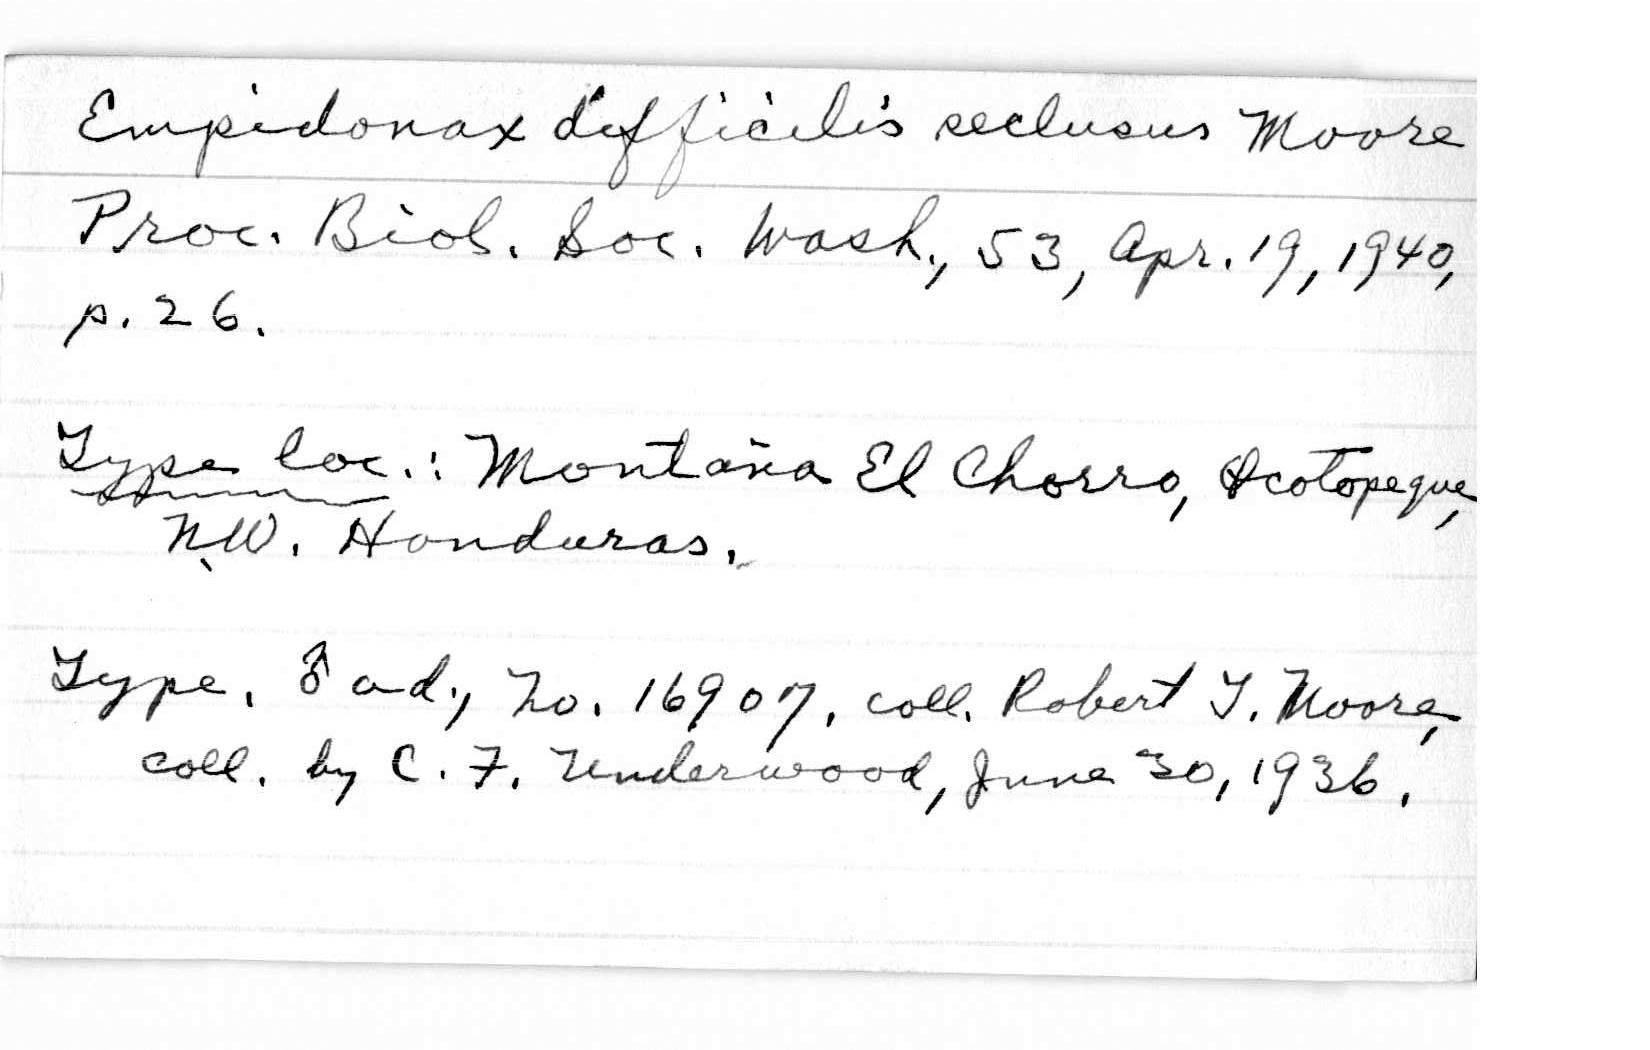 Empidonax difficilis seclusus Moore
Proc. Biol. Soc. Wash., 53, Apr. 19, 1940,
p. 26.
Type loc.: Montaña El Chorro, Ocotopeque,
N.W. Honduras.
Type, ♂ ad., No. 16907, coll. Robert T. Moore,
coll. by C. F. Underwood, June 30, 1936.